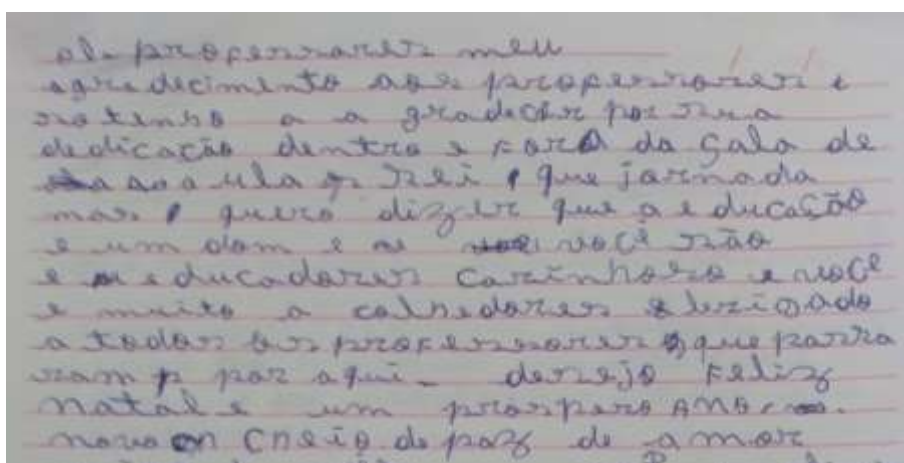 ola professores meu
agradecimento aos professores e
so tenho a a gradecer por sua
dedicacão dentro e fora da sala de
aula sei que jornada
mas quero dizer que a e ducação
e um dom e se você são
e educadores carinhoso e você
e muito a colhedores obrigado
a todos os professores que passa
ram por aqui - desejo Feliz
natal e um prospero ANO
novo cheio de paz de amor